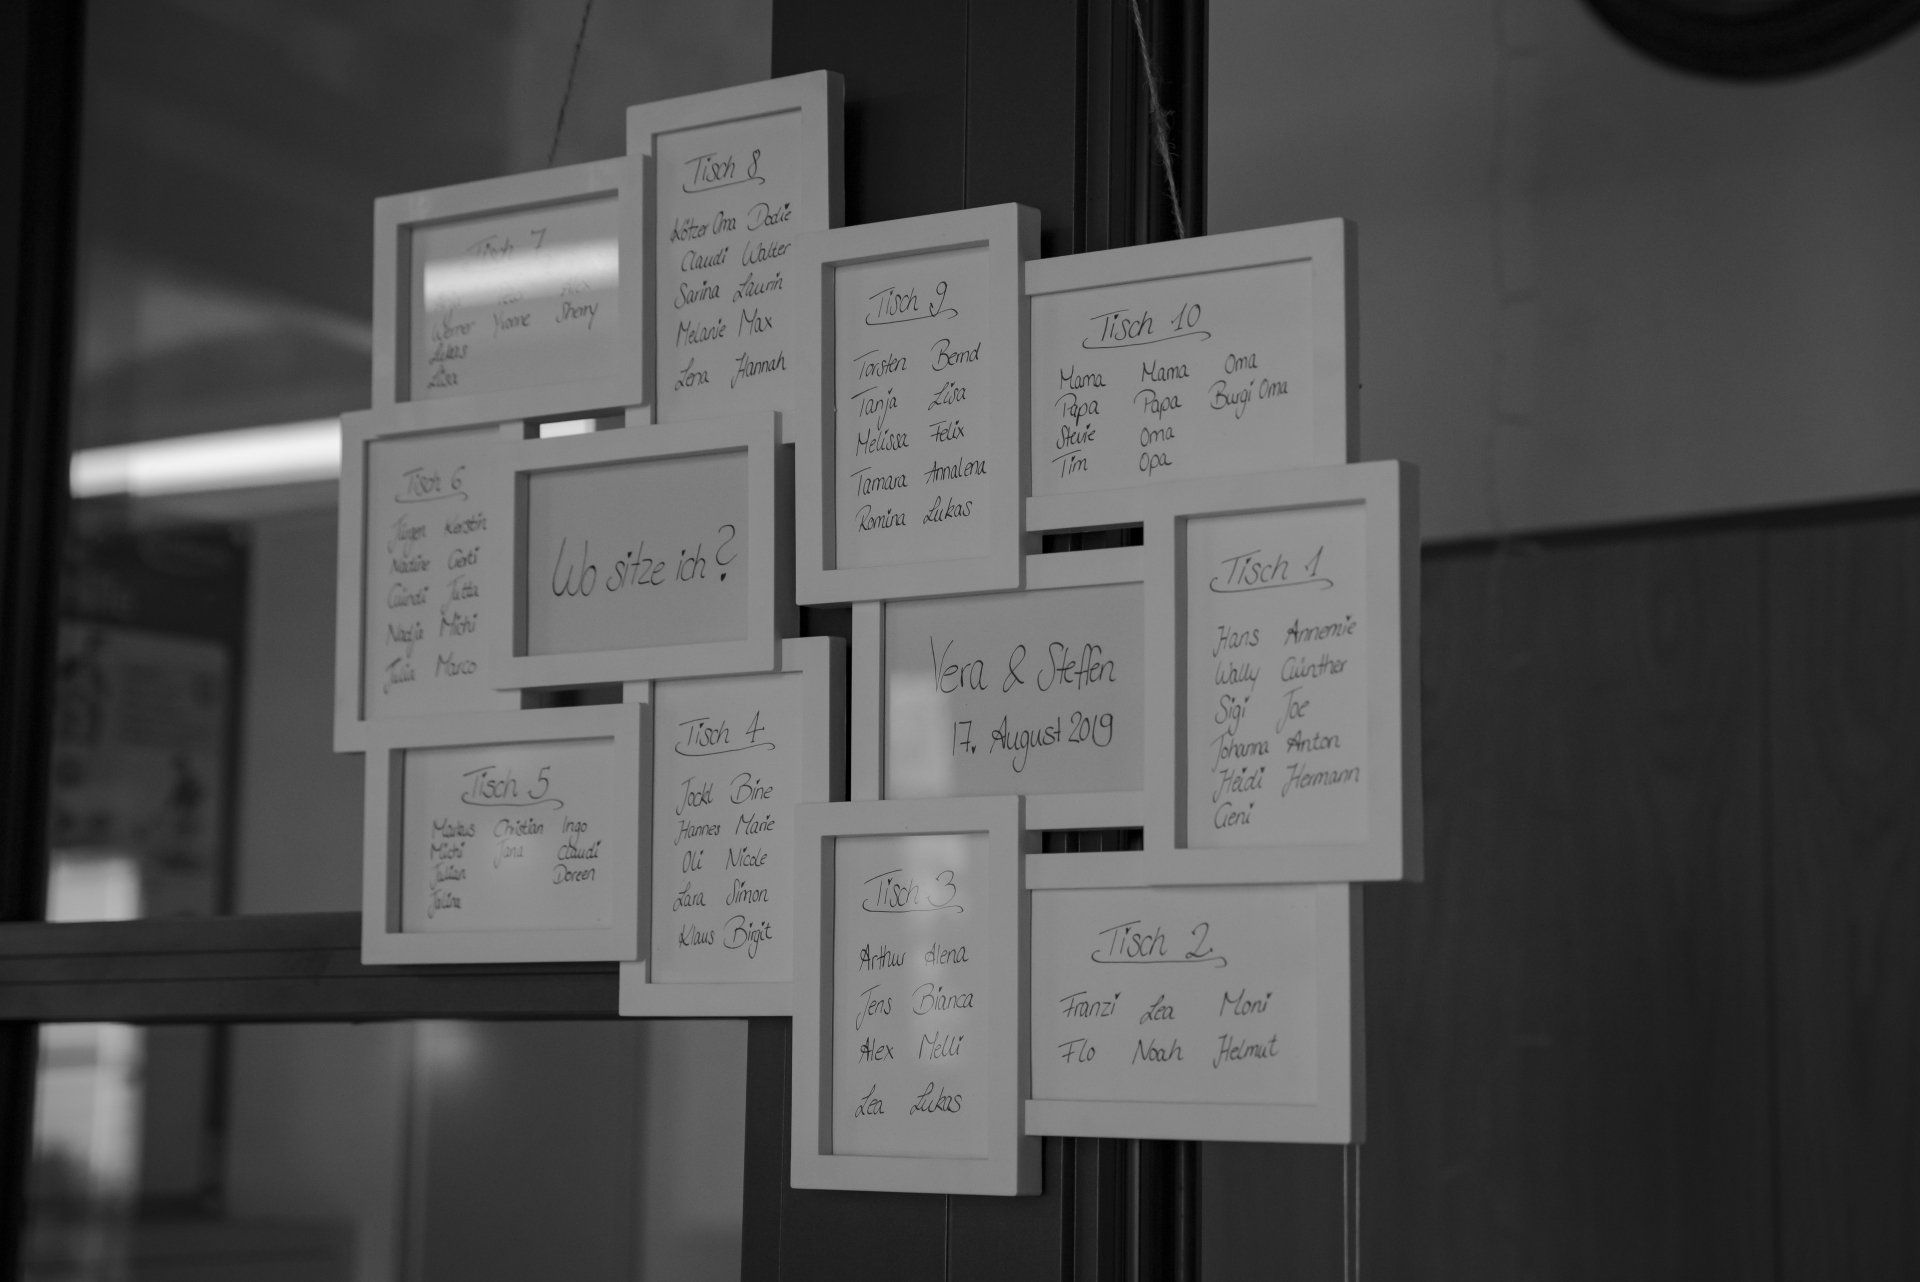 Tisch 7
Alex
Werner Yvonne Sherry
Lukas
Lisa
Tisch 8
Kötzer Oma Dodie
Claudi Walter
Sarina Laurin
Melanie Max
Lena Hannah
Tisch 9
Torsten Bernd
Tanja Lisa
Melissa Felix
Tamara Annalena
Romina Lukas
Tisch 10
Mama Mama Oma
Papa Papa Burgi Oma
Stevie Oma
Tim Opa
Tisch 6
Jürgen Kerstin
Nadine Gerti
Jutta
Nadja Michi
Julia Marco
Wo sitze ich?
Vera & Steffen
17. August 2019
Tisch 1
Hans Annemie
Wally Günther
Sigi Joe
Johanna Anton
Heidi Hermann
Geni
Tisch 5
Markus Christian Ingo
Michi Jana Claudi
Julian Doreen
Tisch 4
Jockl Bine
Hannes Marie
Oli Nicole
Lara Simon
Klaus Birgit
Tisch 3
Arthur Alena
Jens Bianca
Alex Melli
Lea Lukas
Tisch 2
Franzi Lea Moni
Flo Noah Helmut